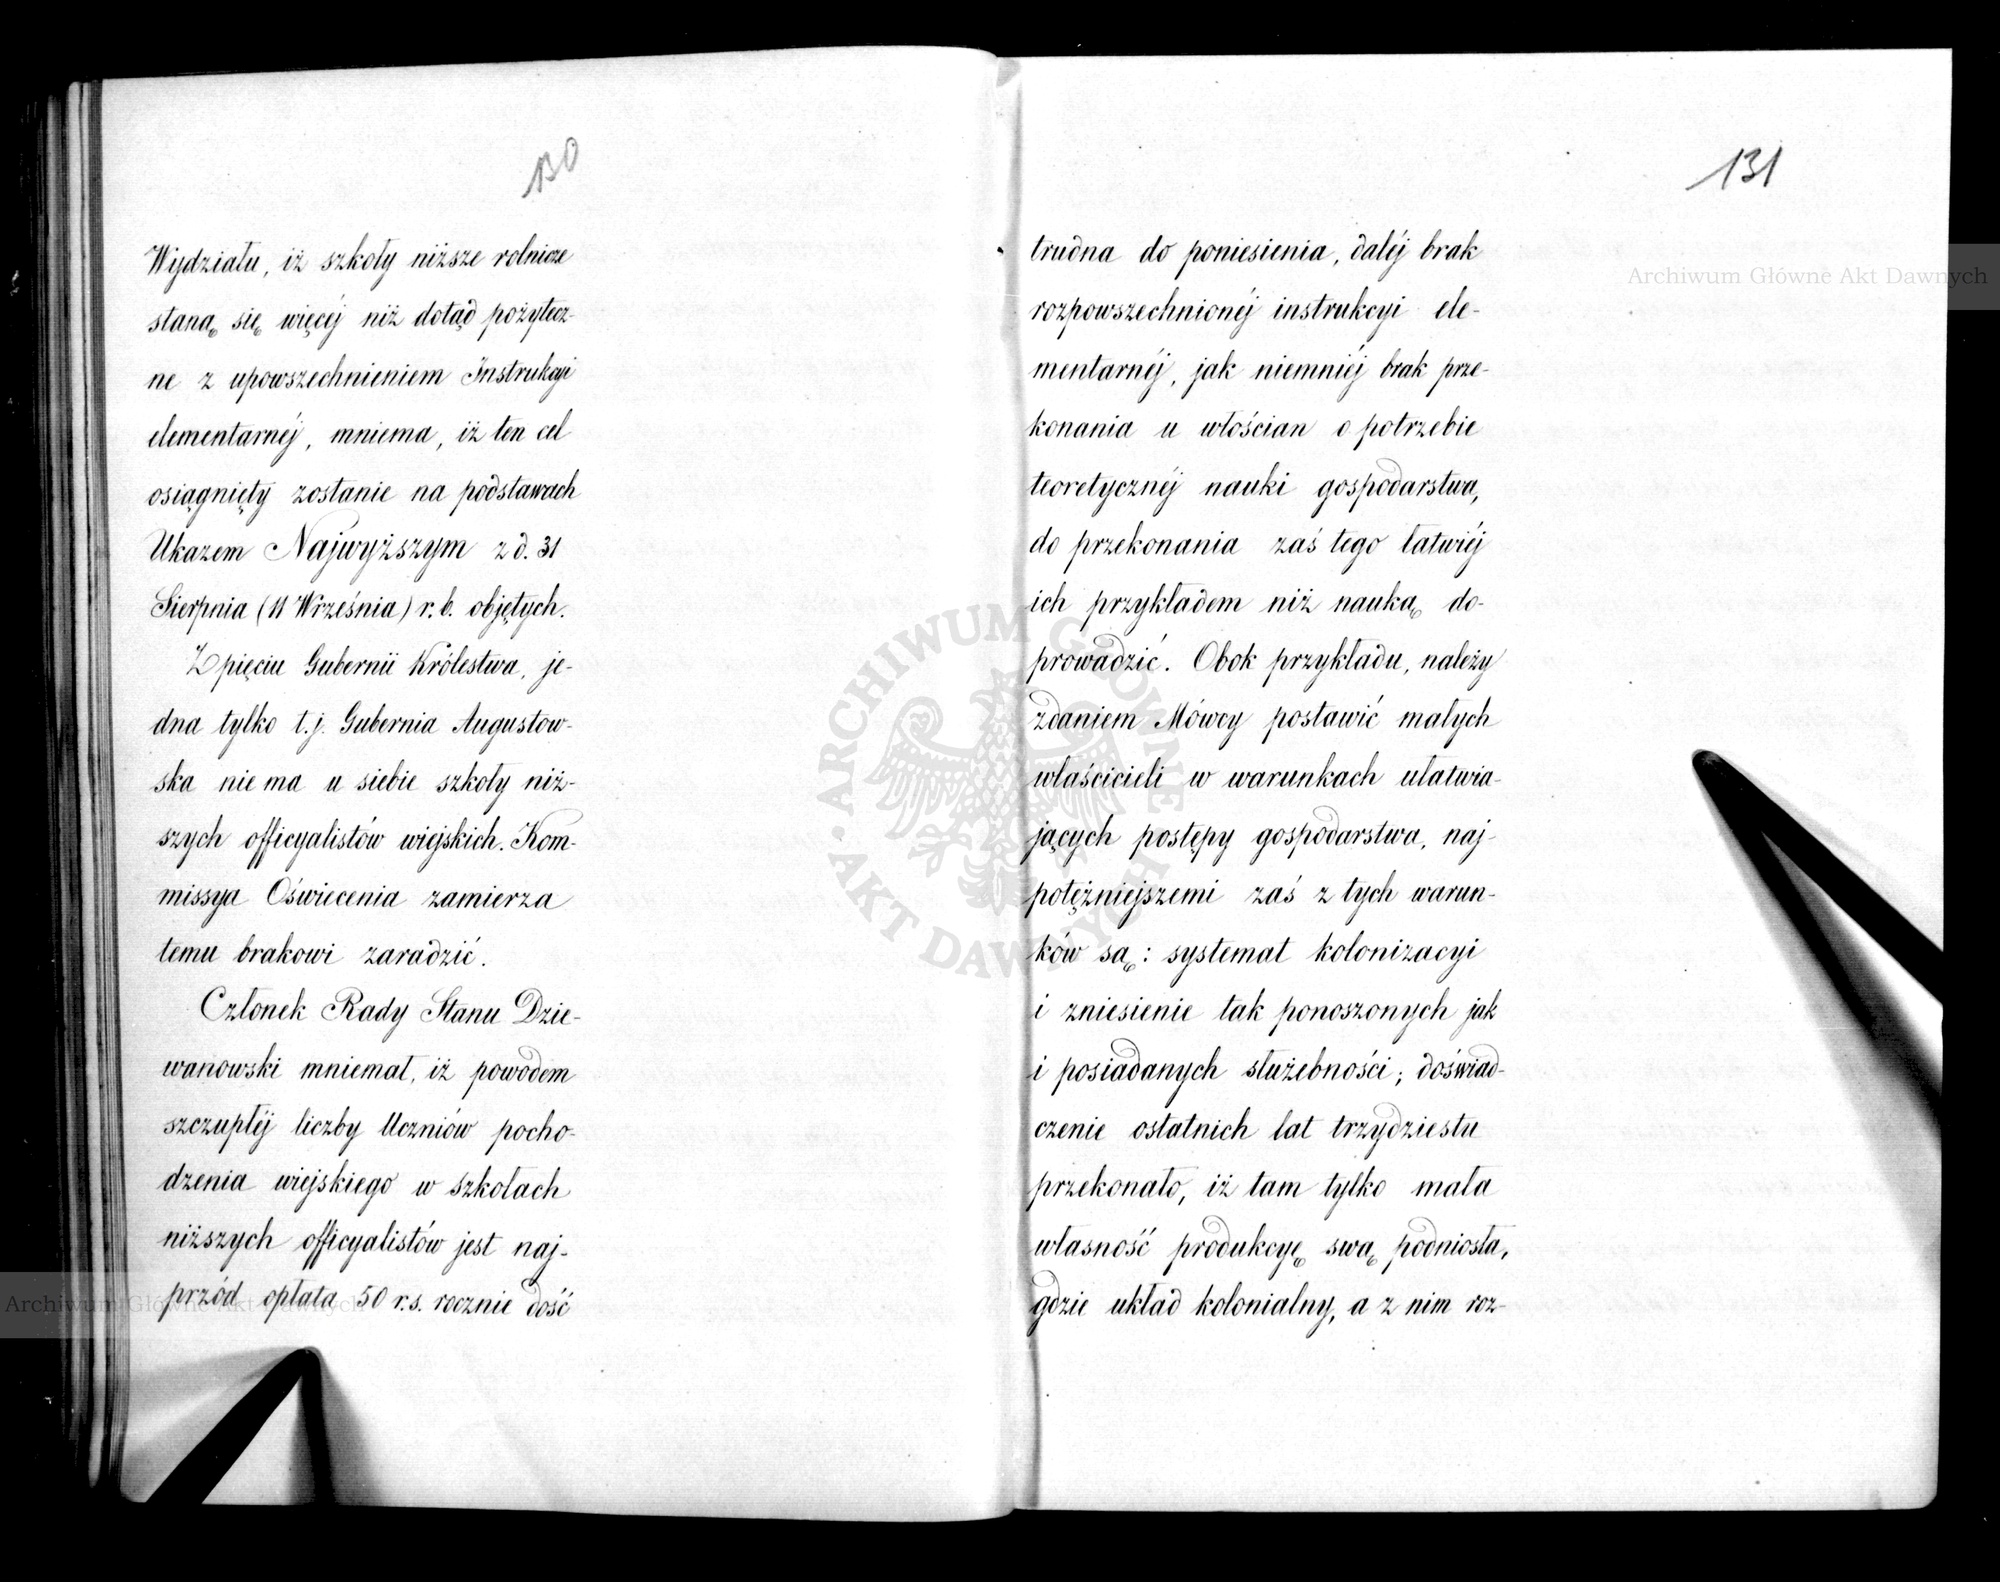 130
Wydziału, iż szkoły niższe rolnicze
staną się więcéj niż dotąd pożytecz-
ne z upowszechnieniem Instrukcyi
elementarnéj, mniema, iż ten cel
osiągnięty zostanie na podstawach
Ukazem Najwyższym z d. 31
Sierpnia (11 Września) r. b. objętych.
Z pięciu Gubernii Królestwa, je-
dna tylko t. j. Gubernia Augustow-
ska nie ma u siebie szkoły niż-
szych officyalistów wiejskich. Kom-
missya Oświecenia zamierza
temu brakowi zaradzić.
Członek Rady Stanu Dzie-
wanowski mniemał, iż powodem
szczupłéj liczby Uczniów pocho-
dzenia wiejskiego w szkołach
niższych officyalistów jest naj-
przód opłata 50 r.s. rocznie dość
131
trudna do poniesienia, daléj brak
rozpowszechnionéj instrukcyi ele-
mentarnéj, jak niemniéj brak prze-
konania u włościan o potrzebie
teoretycznéj nauki gospodarstwa,
do przekonania zaś tego łatwiéj
ich przykładem niż nauką do-
prowadzić. Obok przykładu, należy
zdaniem Mówcy postawić małych
właścicieli w warunkach ułatwia-
jących postępy gospodarstwa, naj-
potężniejszemi zaś z tych warun-
ków są: systemat kolonizacyi
i zniesienie tak ponoszonych jak
i posiadanych służebności; doświad-
czenie ostatnich lat trzydziestu
przekonało, iż tam tylko mała
własność produkcyę swą podniosła,
gdzie układ kolonialny, a z nim roz-
Archiwum Główne Akt Dawnych
Archiwum Główne Akt Dawnych
ARCHIWUM GŁÓWNE AKT DAWNYCH